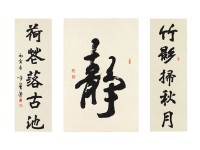 竹影掃秋月
靜
荷花落古池